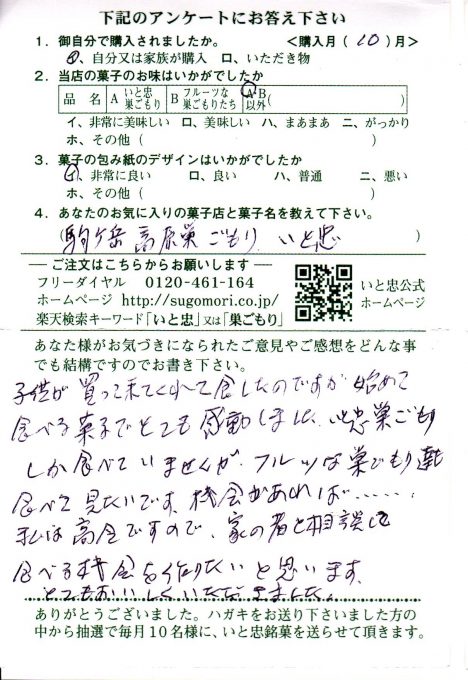 下記のアンケートにお答え下さい
1. 御自分で購入されましたか。 <購入月(10)月>
イ、自分又は家族が購入 ロ、いただき物
2. 当店の菓子のお味はいかがでしたか
品 名 A いと忠巣ごもり B フルーツな巣ごもりたち A・B以外( )
イ、非常に美味しい ロ、美味しい ハ、まあまあ ニ、がっかり
ホ、その他( )
3. 菓子の包み紙のデザインはいかがでしたか
イ、非常に良い ロ、良い ハ、普通 ニ、悪い
ホ、その他( )
4. あなたのお気に入りの菓子店と菓子名を教えて下さい。
(駒ヶ岳 高原巣ごもり いと忠 )
― ご注文はこちらからお願いします ―
フリーダイヤル 0120-461-164
ホームページ http://sugomori.co.jp/
楽天検索キーワード「いと忠」又は「巣ごもり」
いと忠公式
ホームページ
あなた様がお気づきになられたご意見やご感想をどんな事
でも結構ですのでお書き下さい。
子供が買って来てくれて食したのですが始めて
食べる菓子でとても感動しました、いと忠巣ごもり
しか食べていませんが、フルーツな巣ごもり達
食べて見たいです、機会があれば……、
私は高令ですので、家の者と相談して
食べる機会を作りたいと思います、
とてもおいしくいただきました。
ありがとうございました。ハガキをお送り下さいました方の
中から抽選で毎月10名様に、いと忠銘菓を送らせて頂きます。